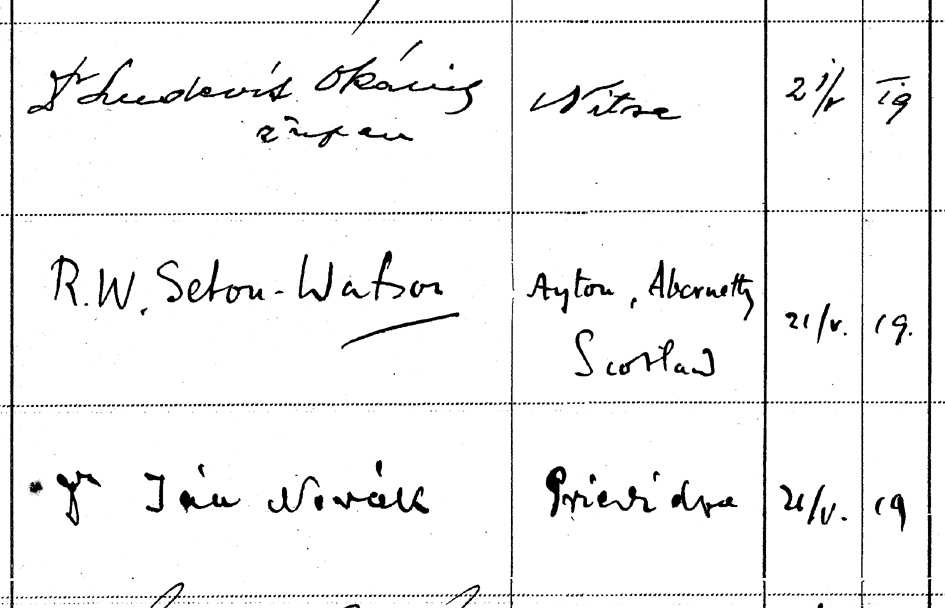 Dr Ľudovít Okánik Nitra 21/V 19
župan
R.W. Seton-Watson Ayton, Abernethy 21/V. 19.
Scotland
Dr Ján Novák Prievidza 21/V. 19